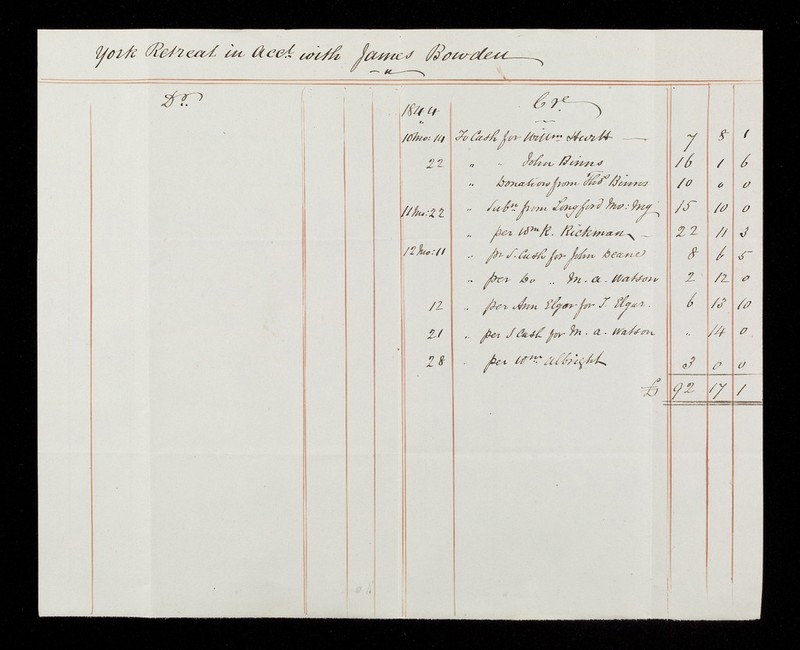 York Retreat in acct with James Bowden
Dr. Cre
1844
10 mo: 14 To Cash for Willm Hurtt — 7 8 1
22 " " John Binns 16 1 6
" Donation from Thos Binns 10 0 0
11 mo: 22 " Subn from Longford Mo: Mg 15 10 0
" per Wm R. Rickman — 22 11 3
12 mo: 11 " pr S. Cash for John Deane 8 6 5
" per Do " M. A. Watson 2 12 0
12 " per Ann Elgar for J. Elgar 6 13 10
21 " per S Cash for M. A. Watson " 14 0
28 " per Wm Albright 3 0 0
£ 92 17 1